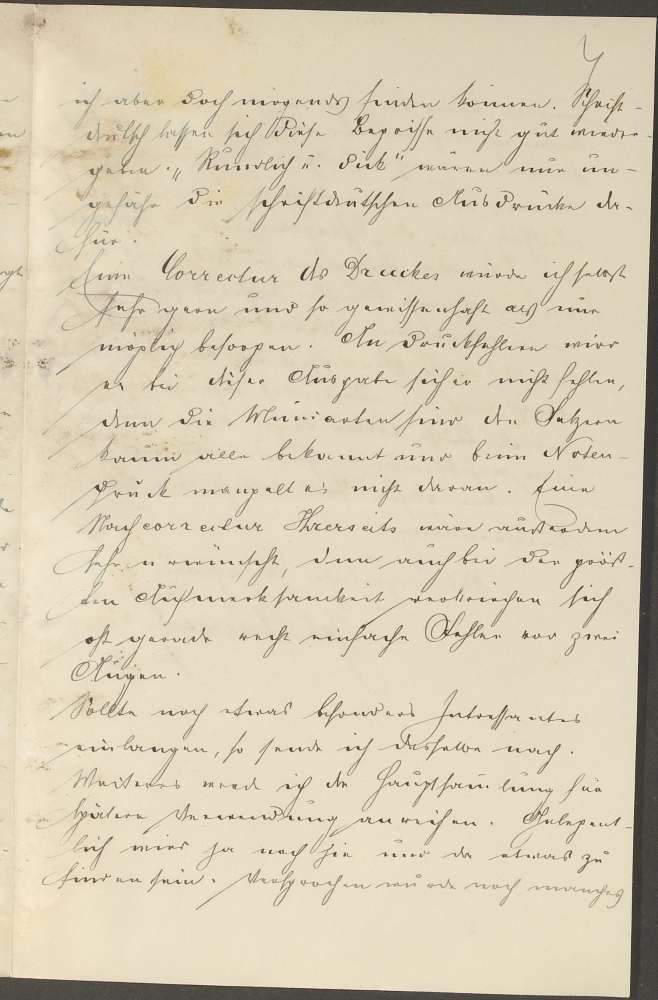 ich aber doch nirgends finden können. Schrift-
deutsch lassen sich diese Begriffe nicht gut wieder-
geben. „Rundlich u. dick" wären nur un-
gefähr die schriftdeutschen Ausdrücke da-
für.
Eine Correctur des Druckes würde ich selbst
sehr gern und so gewissenhaft als nur
möglich besorgen. An Druckfehlern wird
es bei dieser Ausgabe sicher nicht fehlen,
denn die Mundarten sind den Setzern
kaum alle bekannt und beim Noten-
druck mangelt es nicht daran. Eine
Nachcorrectur Ihrerseits wäre außerdem
sehr erwünscht, denn auch bei der größt-
en Aufmerksamkeit verkriechen sich
oft gerade recht einfache Fehler vor zwei
Augen.
Sollte noch etwas besonders Interessantes
einlangen, so sende ich dasselbe nach.
Weiteres werde ich der Hauptsammlung für
spätere Verwendung anreihen. Gelegent-
lich wird ja noch hie und da etwas zu
finden sein. Versprochen wurde noch manches